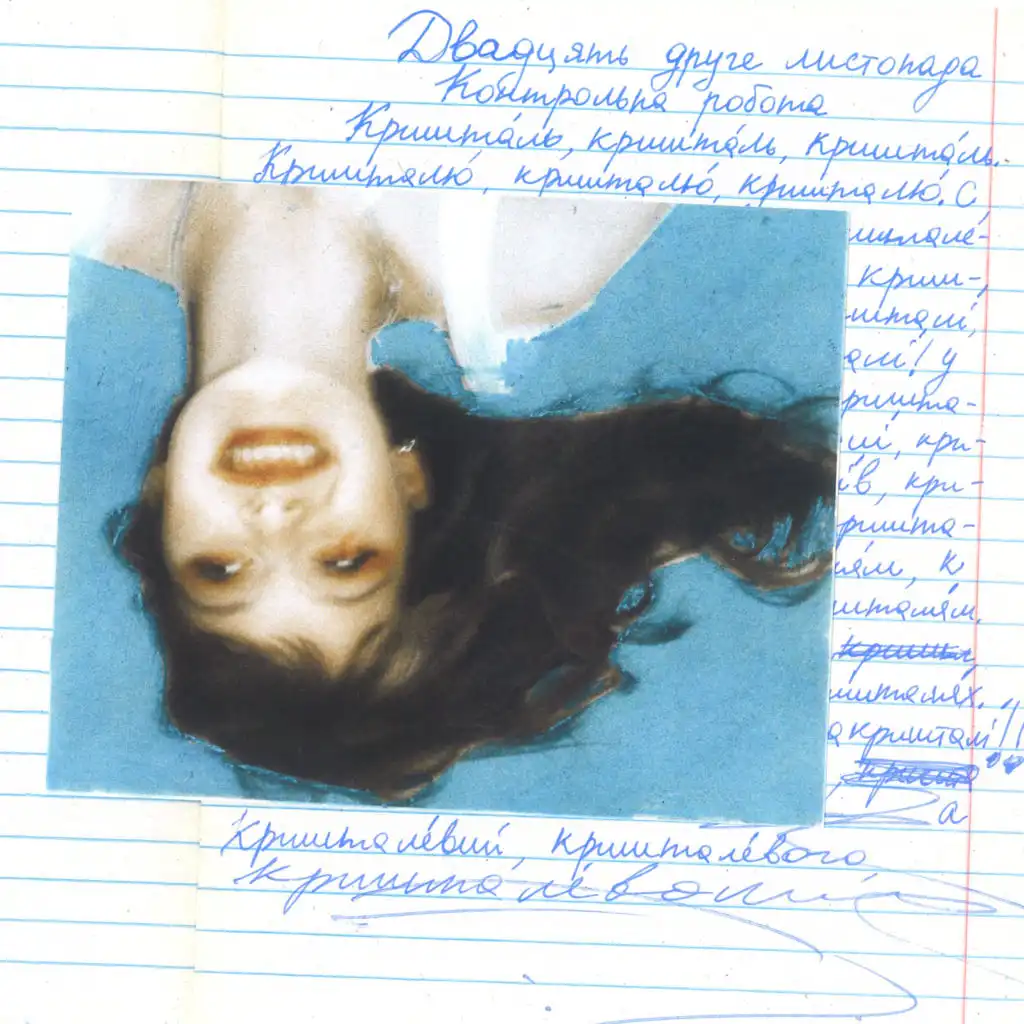 Двадцять друге листопада
Контрольна робота
Кришта́ль, кришта́ль, кришта́ль.-
Кришталю́, кришталю́, кришталю́. С
шталé-
криш-,
шталі,
алі! у
ришта-
ці, кри-
їв, кри-
ришта-
лям, к
шталям.
шталях.
а кришталі!!
а
Криштале́вий, криштале́вого
Криштале́вому